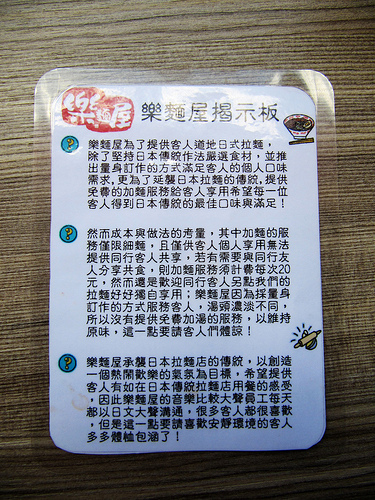 樂麵屋 樂麵屋揭示板
樂麵屋為了提供客人道地日式拉麵，
除了堅持日本傳統作法嚴選食材，並推
出量身訂作的方式滿足客人的個人口味
需求，更為了延襲日本拉麵的傳統，提供
免費的加麵服務給客人享用希望每一位
客人得到日本傳統的最佳口味與滿足！
然而成本與做法的考量，其中加麵的服
務僅限細麵，且僅供客人個人享用無法
提供同行客人共享，若有需要與同行友
人分享共食，則加麵服務須計費每次20
元，然而還是歡迎同行客人另點我們的
拉麵好好獨自享用；樂麵屋因為採量身
訂作的方式服務客人，湯頭濃淡不同，
所以沒有提供免費加湯的服務，以維持
原味，這一點要請客人們體諒！
樂麵屋承襲日本拉麵店的傳統，以創造
一個熱鬧歡樂的氣氛為目標，希望提供
客人有如在日本傳統拉麵店用餐的感受
，因此樂麵屋的音樂比較大聲員工每天
都以日文大聲溝通，很多客人都很喜歡
，但是這一點要請喜歡安靜環境的客人
多多體恤包涵了！